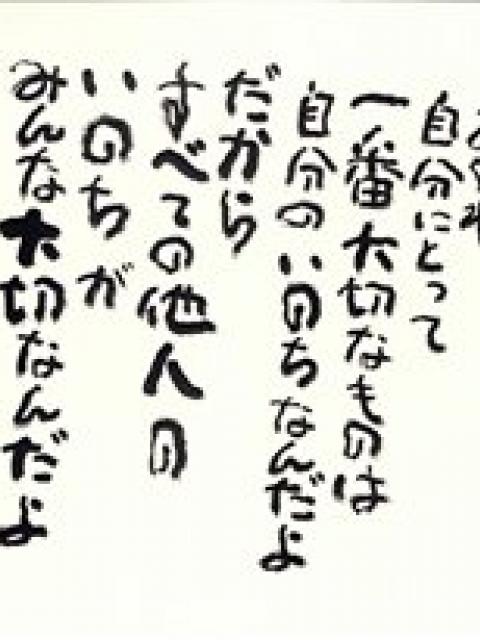 自分にとって
一番大切なものは
自分のいのちなんだよ
だから
すべての他人の
いのちが
みんな大切なんだよ